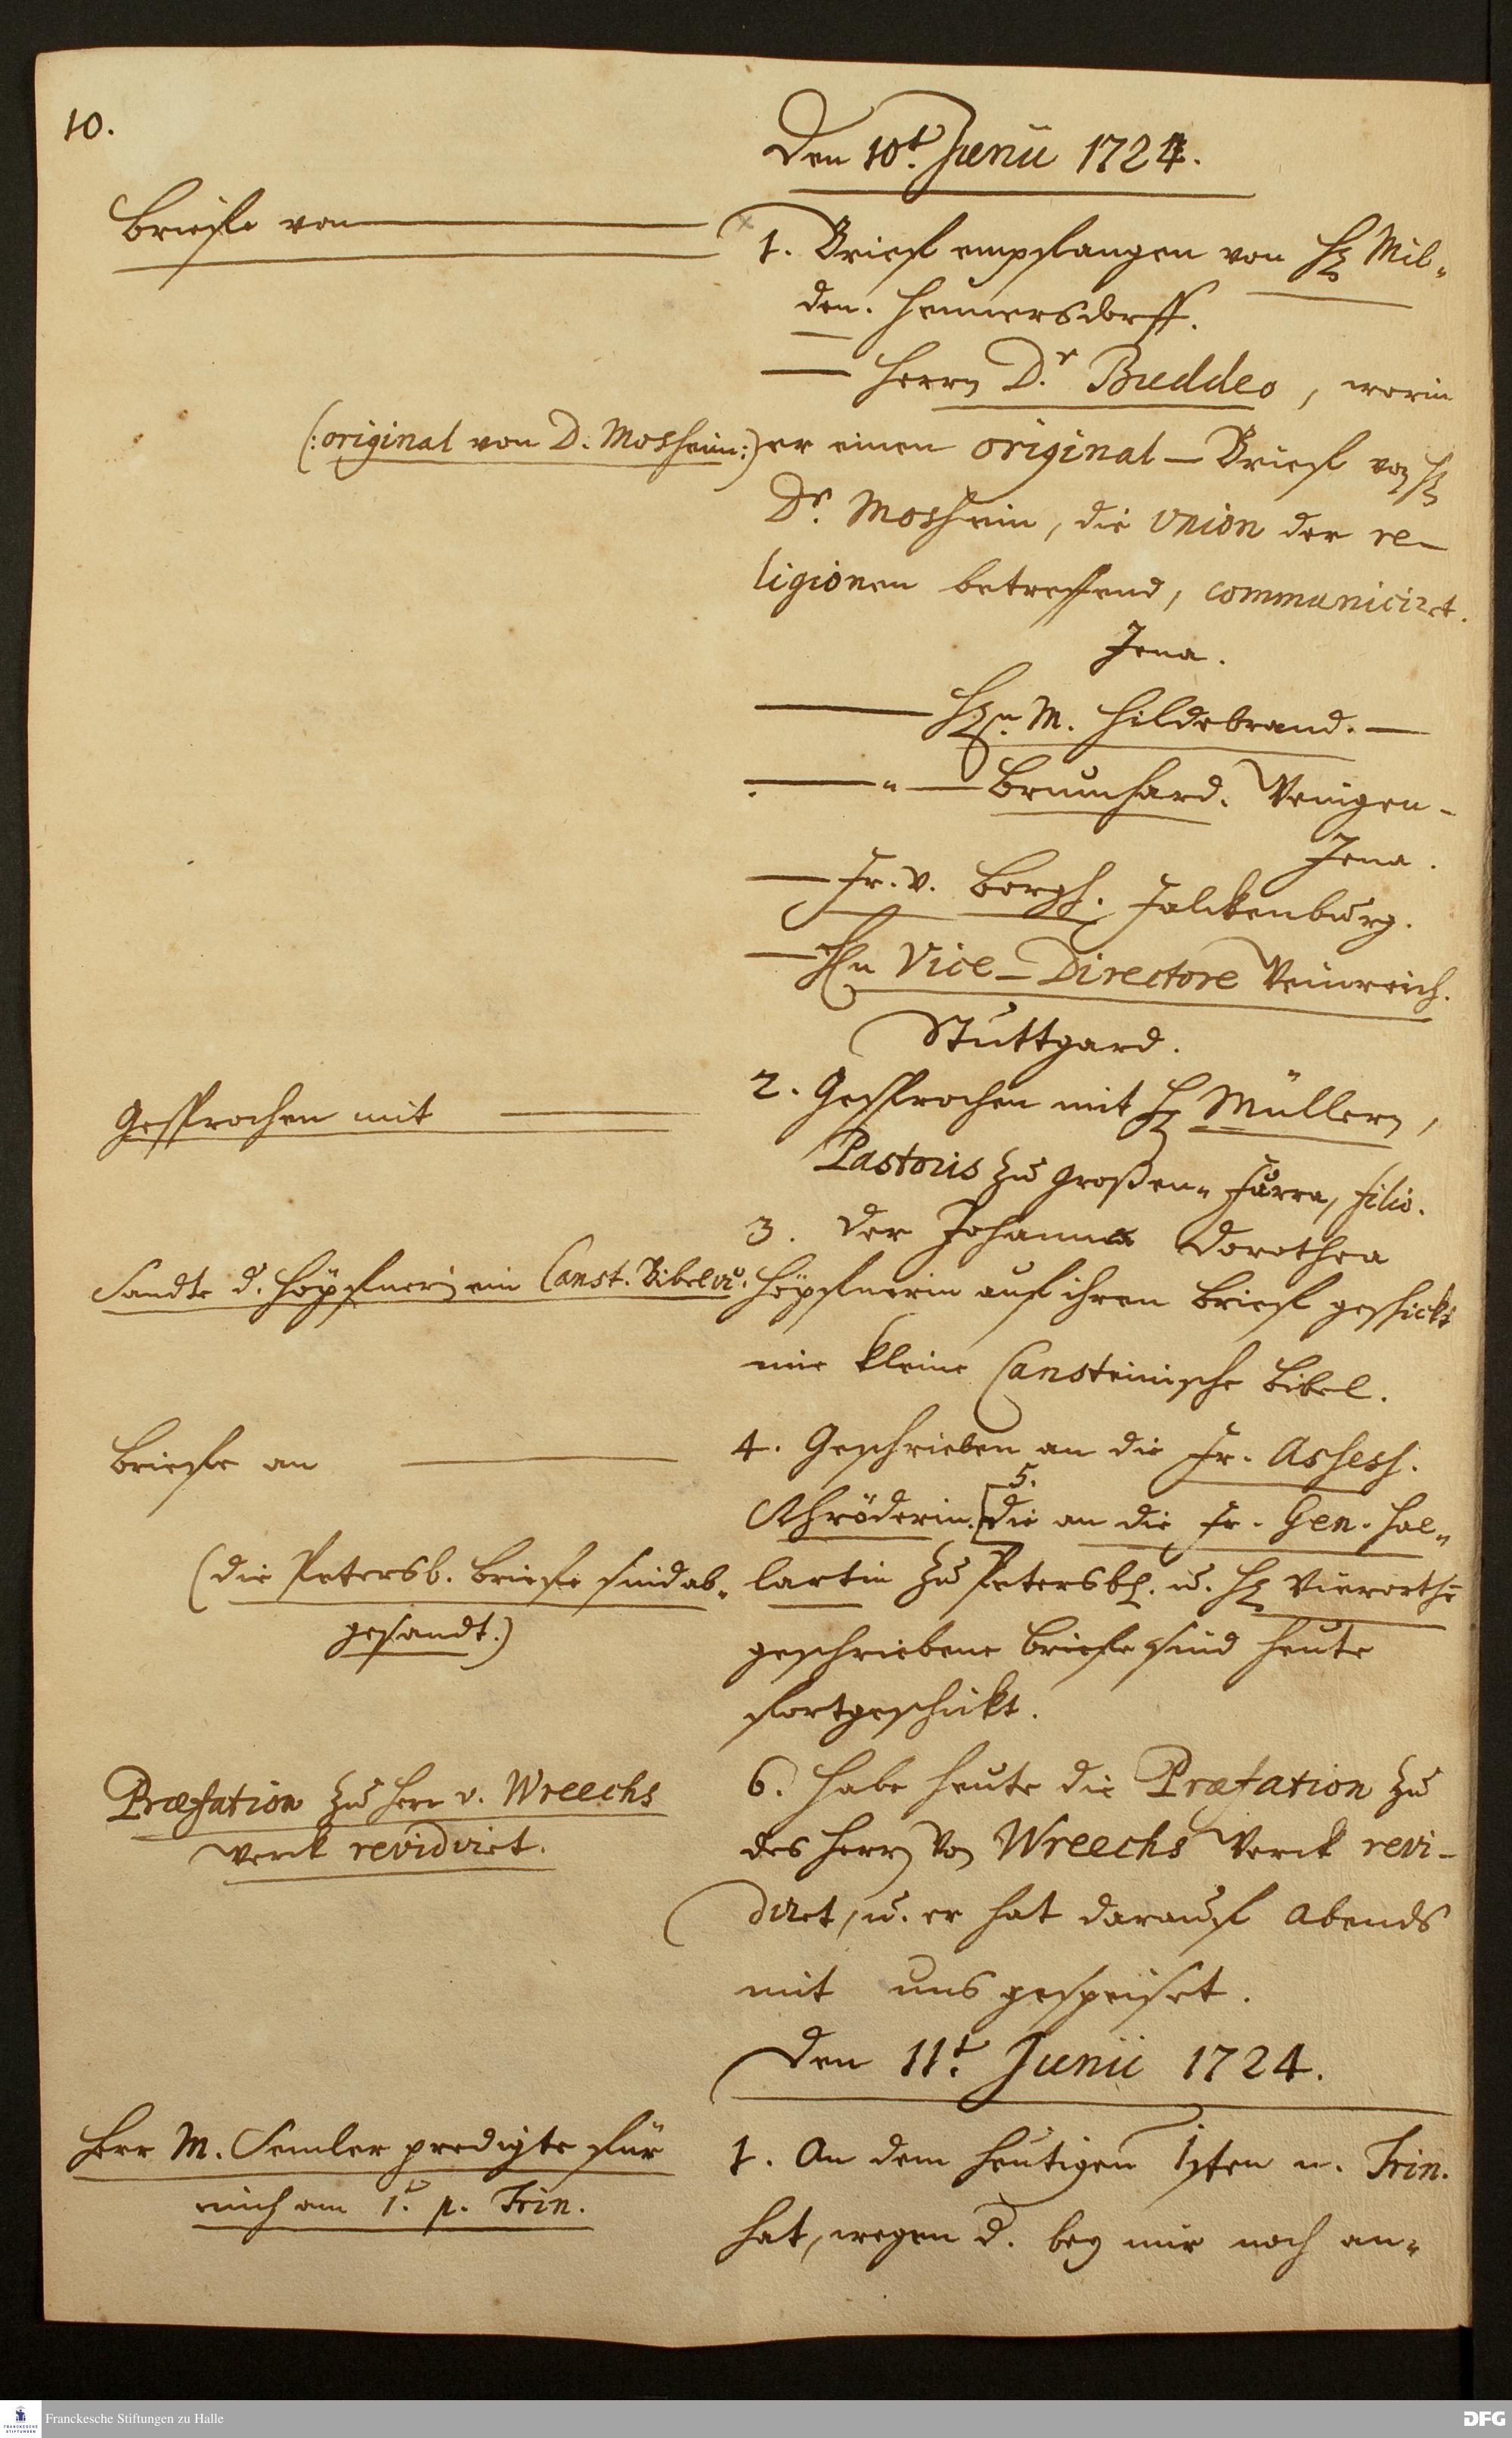 10.
Den 10t. Junii 1724.
Briefe von
1. Brief empfangen von H. Mil-
den. Hennersdorff.
Herrn D.r Buddeo, worin
(: original von D. Mosheim :)
er einen original-Brief von H.
Dr. Mosheim, die Union der re-
ligionen betreffend, communiciret.
Jena.
Hn. M. Hildebrand.
" Brumhard. Wenigen-
Jena.
Fr. v. Borgh. Falckenburg.
Hn Vice-Directore Weinreich.
Stuttgard.
Gesprochen mit
2. Gesprochen mit H. Müllern,
Pastoris zu Großen-Furra, filio.
3. Der Johanna Dorothea
Sandte d. Höpfnerin ein Canst. Bibel
Höpfnerin auf ihren Brief geschickt
eine kleine Cansteinische Bibel.
Briefe an
4. Geschrieben an die Fr. Assess.
Schröderin. 5. die an die Fr. Gen. Hal-
(die Petersb. Briefe sind ab-
gesandt.)
lartin zu Petersb. u. H. Vierorth
geschriebene Briefe sind heute
fortgeschickt.
Præfation zu Herr v. Wreechs
Werck revidiret.
6. Habe heute die Præfation zu
des Herrn von Wreechs Werck revi-
diret, u. er hat darauf Abends
mit uns gespeiset.
Den 11t. Junii 1724.
Herr M. Semler predigte für
mich am 1. p. Trin.
1. An dem heutigen 1sten n. Trin.
hat, wegen d. bey mir noch an-
Franckesche Stiftungen zu Halle
FRANCKESCHE
STIFTUNGEN
DFG